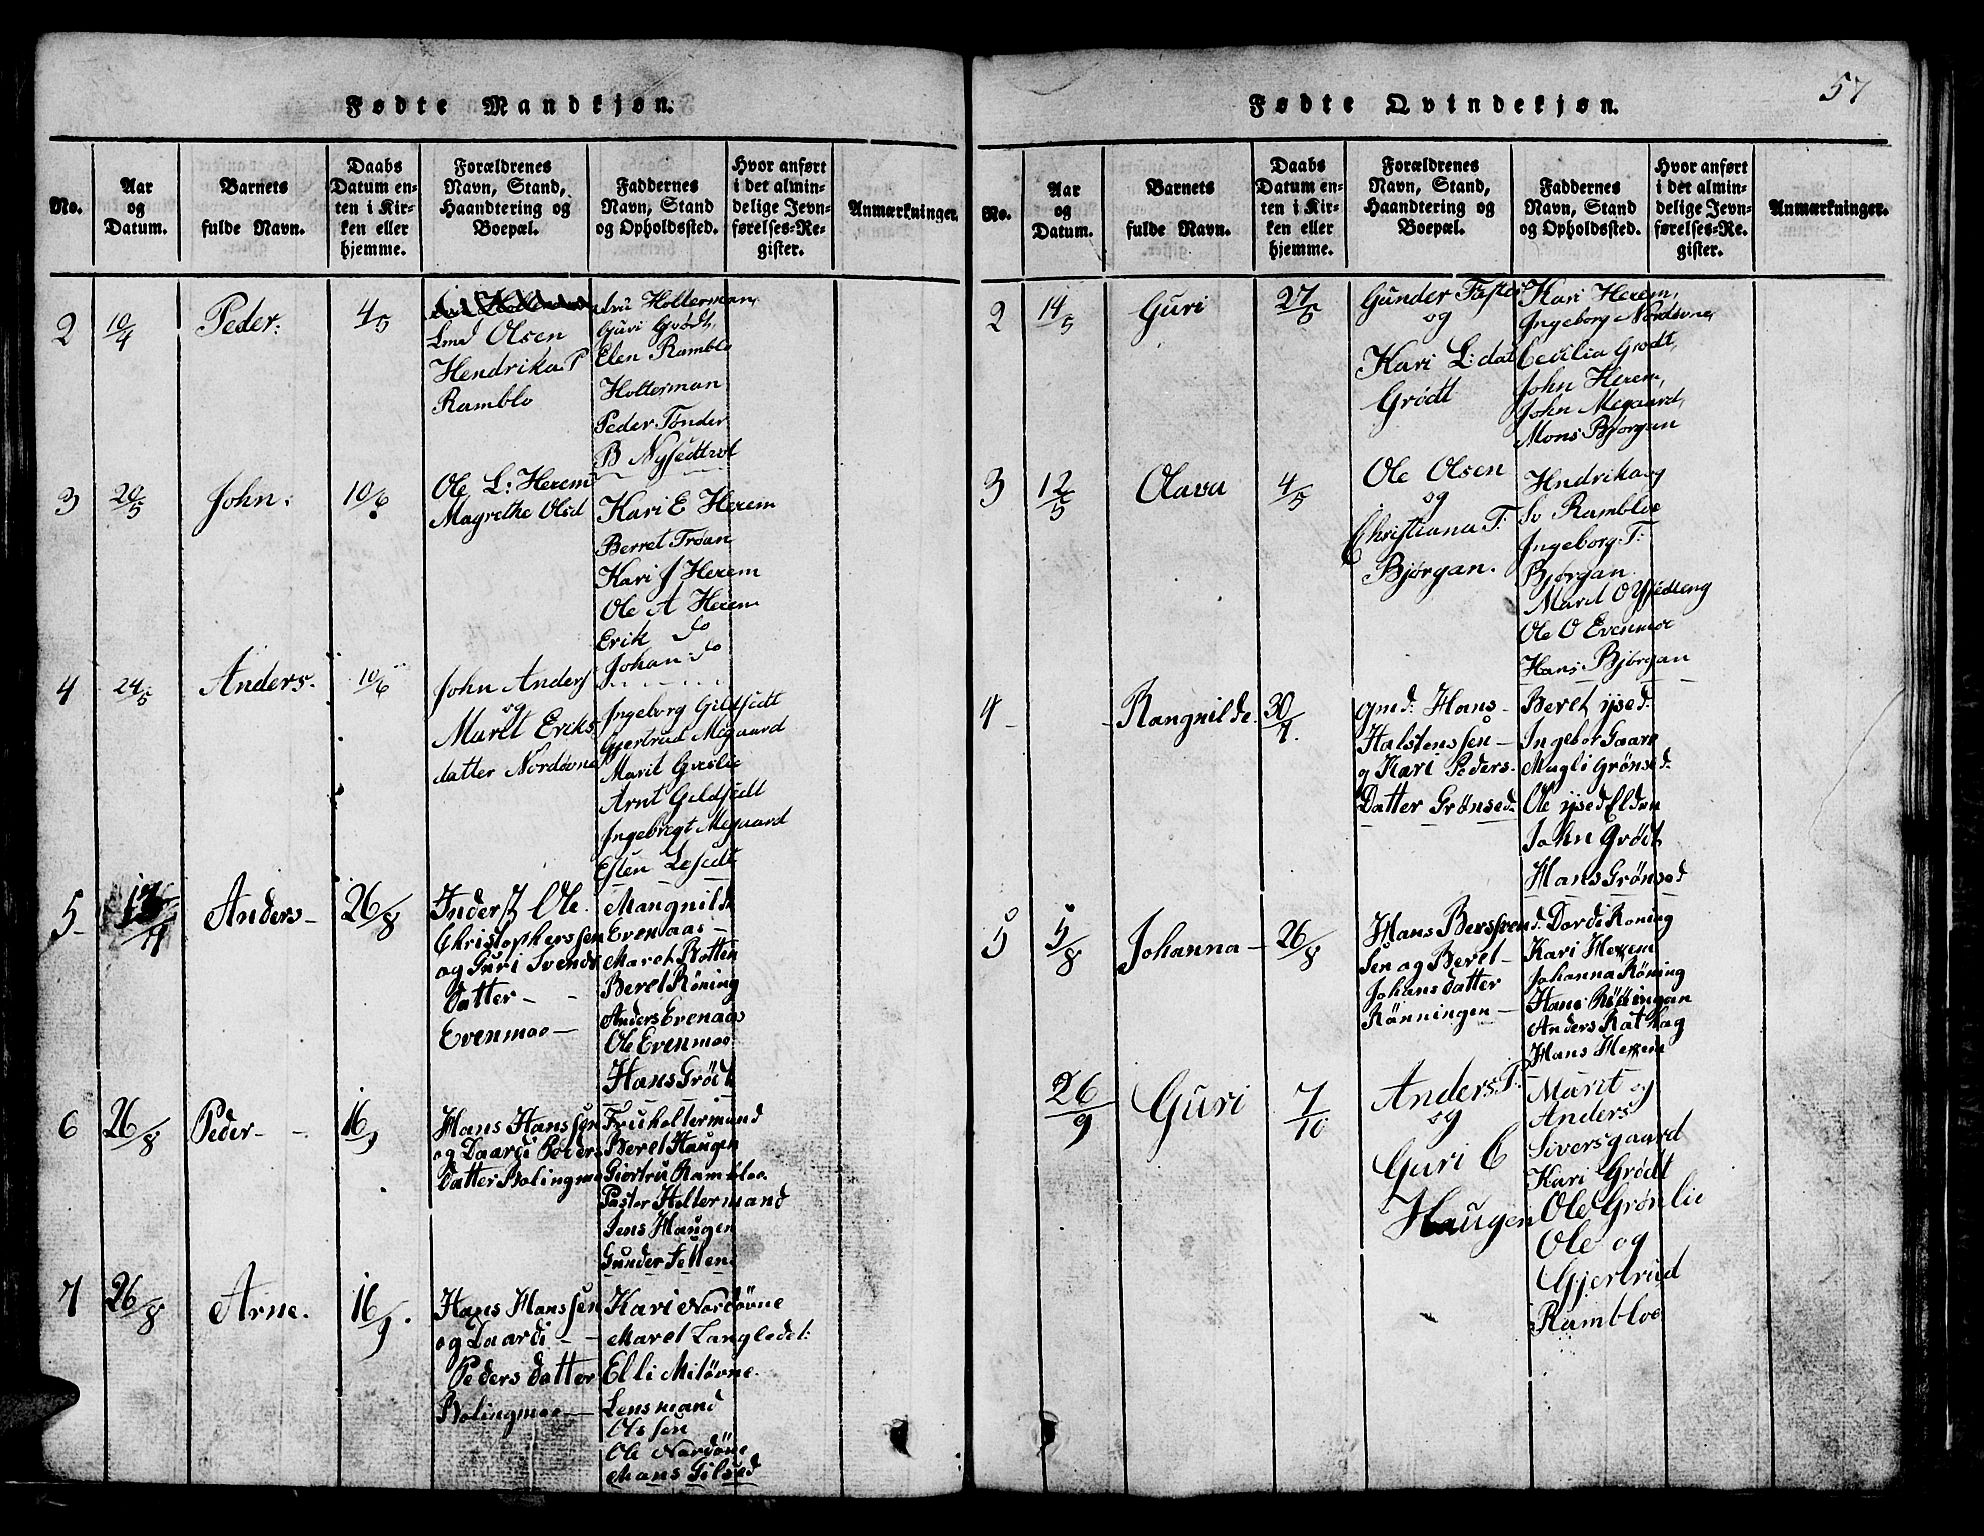 57
Fødte Mandkjøn.
No.
Aar
og
Datum.
Barnets
fulde Navn.
Daabs
Datum en-
ten i Kir-
ken eller
hjemme.
Forældrenes
Navn, Stand,
Haandtering og
Boepæl.
Faddernes
Navn, Stand
og Opholdssted.
Hvor anført
i det almin-
delige Jevn-
førelses-Re-
gister.
Anmærkninger.
2
10/4
Peder:
4/5
Lmd Olsen
Hendrika P
Ramblo
fru Holterman,
Guri Grødt,
Elen Ramblo
Holterman
Peder Tønder
B Nysedtrot
3
20/5
John:
10/6
Ole L: Herem
Magrethe Olsd
Kari E Herem
Berret Troan
Kari J Herem
Ole A Herem
Erik do
Johan do
4
24/5
Anders.
10/6
John Anders
og
Maret Eriks
datter Nordøvne
Ingeborg Gildsedt
Gjertrud Megaard
Marit Græslie
Arnt Gildsedt
Ingebrigt Megaard
Esten Lesedt
5
Anders-
26/8
Inderst Ole
Christopherssen
og Guri Svends
Datter -
Evenmoe-
Mangnilde
Evenaas-
Maret Kotten
Beret Røning
Anders Evenaas
Ole Evenmoe
Hans Grødt
6
26/8
Peder-
16/9
Hans Hanssen
og Daardi Peders
Datter Bolingmoe
Fruholtermand
Beret Haugen
Giertru Rambloe.
Paster Holtermand
Jens Haugen
Gunder Fetten
7
26/8
Arne.
16/9.
Hans Hanssen
og Daardi - -
Peders datter
Bolingmoe-
Kari Nordøvne
Maret Langledet:
Elli Miløvne.
Lensmand
Olssen
Ole Nordøne
Mans Gilsed
Fødte Qvindekjøn.
No.
Aar
og
Datum.
Barnets
fulde Navn.
Daabs
Datum en-
ten i Kir-
ken eller
hjemme.
Forældrenes
Navn, Stand,
Haandtering og
Boepæl.
Faddernes
Navn, Stand
og Opholdssted.
Hvor anført
i det almin-
delige Jevn-
førelses-Re-
gister.
Anmærkninger.
2
14/5
Guri
27/5
Gunder
og
Kari L: dat
Grødt
Kari Herem,
Ingeborg Nordøvne,
Cecilia Grødt,
John Herem,
John Megaard,
Mons Bjørgan
3
12/5
Olava
4/5
Ole Olsen
og
Christiana T:
Bjørgan.
Hendrika og
So Rambloe
Ingeborg T:
Bjørgan.
Maret O Ysedteng
Ole O Evenmoe
Hans Bjørgan
4
Rangnilde.
30/7.
Gmd: Hans-
Halstenssen-
og Kari Peders-
Datter Grønsed-
Beret ysed-
Ingebor Gaare
Magli Grønsed-
Ole ysed Eldan
John Grødt
Hans Grønsed
5
5/8
Johanna-
26/8
Hans Berssven
Sen og Beret-
Johansdatter
Rønningen-
d. Dordi Roning
Kari Herem
Johanna Røning
Hans Røningan
Anders Rathag
Hans Herem
26/9
Guri
7/10
Anders T:
og
Guri E
Haugen
Marit og
Anders
Siversgaard
Kari Grødt
Ole Grønlie
Ole og
Gjertrud
Rambloe